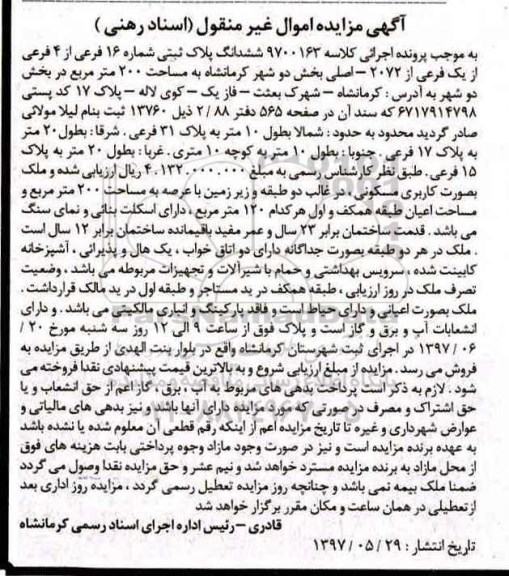 آگهی مزایده اموال غیر منقول (اسناد رهنی)
به موجب پرونده اجرائی کلاسه ۹۷۰۰۱۶۳ ششدانگ پلاک ثبتی شماره ۱۶ فرعی از ۴ فرعی
از یک فرعی از ۲۰۷۲ – اصلی بخش دو شهر کرمانشاه به مساحت ۲۰۰ متر مربع در بخش
دو شهر به آدرس : کرمانشاه – شهرک بعثت – فاز یک – کوی لاله – پلاک ۱۷ کد پستی
۶۷۱۷۹۱۴۷۹۸ که سند آن در صفحه ۵۶۵ دفتر ۲/۸۸ ذیل ۱۳۷۶۰ ثبت بنام لیلا مولائی
صادر گردید محدود به حدود : شمالا بطول ۱۰ متر به پلاک ۳۱ فرعی . شرقا : بطول ۲۰ متر
به پلاک ۱۷ فرعی . جنوبا : بطول ۱۰ متر به کوچه ۱۰ متری . غربا : بطول ۲۰ متر به پلاک
۱۵ فرعی . طبق نظر کارشناس رسمی به مبلغ ۴.۱۳۲.۰۰۰.۰۰۰ ریال ارزیابی شده و ملک
بصورت کاربری مسکونی ، در غالب دو طبقه و زیر زمین با عرصه به مساحت ۲۰۰ متر مربع و
مساحت اعیان طبقه همکف و اول هرکدام ۱۲۰ متر مربع ، دارای اسکلت بنائی و نمای سنگ
می باشد . قدمت ساختمان برابر ۲۳ سال و عمر مفید باقیمانده ساختمان برابر ۱۲ سال است
. ملک در هر دو طبقه بصورت جداگانه دارای دو اتاق خواب ، یک هال و پذیرائی ، آشپزخانه
کابینت شده ، سرویس بهداشتی و حمام با شیرآلات و تجهیزات مربوطه می باشد ، وضعیت
تصرف ملک در روز ارزیابی ، طبقه همکف در ید مستاجر و طبقه اول در ید مالک قرارداشت .
ملک بصورت اعیانی و دارای حیاط است و فاقد پارکینگ و انباری مالکیتی می باشد . و دارای
انشعابات آب و برق و گاز است و پلاک فوق از ساعت ۹ الی ۱۲ روز سه شنبه مورخ ۲۰ /
۰۶ / ۱۳۹۷ در اجرای ثبت شهرستان کرمانشاه واقع در بلوار بنت الهدی از طریق مزایده به
فروش می رسد . مزایده از مبلغ ارزیابی شروع و به بالاترین قیمت پیشنهادی نقدا فروخته می
شود . لازم به ذکر است پرداخت بدهی های مربوط به آب ، برق ، گاز اعم از حق انشعاب و یا
حق اشتراک و مصرف در صورتی که مورد مزایده دارای آنها باشد و نیز بدهی های مالیاتی و
عوارض شهرداری و غیره تا تاریخ مزایده اعم از اینکه رقم قطعی آن معلوم شده یا نشده باشد
به عهده برنده مزایده است و نیز در صورت وجود مازاد وجوه پرداختی بابت هزینه های فوق
از محل مازاد به برنده مزایده مسترد خواهد شد و نیم عشر و حق مزایده نقدا وصول می گردد
ضمنا ملک بیمه نمی باشد و چنانچه روز مزایده تعطیل رسمی گردد ، مزایده روز اداری بعد
ازتعطیلی در همان ساعت و مکان مقرر برگزار خواهد شد
قادری – رئیس اداره اجرای اسناد رسمی کرمانشاه
تاریخ انتشار : ۲۹ / ۰۵ / ۱۳۹۷